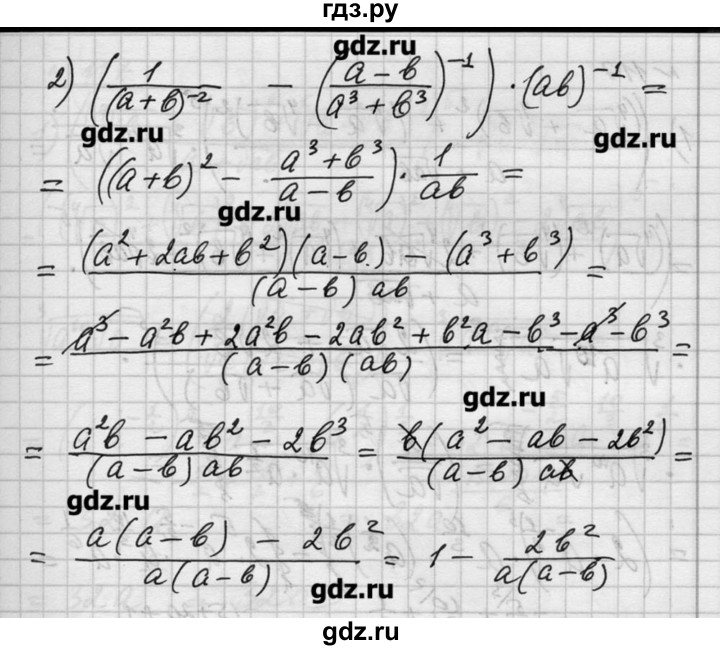 гдз.ру
gdz.ru
2) (1/(a+b)^-2 - ((a-b)/(a^3+b^3))^-1) · (ab)^-1 =
gdz.ru gdz.ru
= ((a+b)^2 - (a^3+b^3)/(a-b)) · 1/(ab) =
gdz.ru
= ((a^2+2ab+b^2)(a-b) - (a^3+b^3))/((a-b) ab) =
= (a^3 - a^2b + 2a^2b - 2ab^2 + b^2a - b^3 - a^3 - b^3)/((a-b)(ab)) =
gdz.ru
= (a^2b - ab^2 - 2b^3)/((a-b) ab) = (b(a^2 - ab - 2b^2))/((a-b) ab) =
gdz.ru
= (a(a-b) - 2b^2)/(a(a-b)) = 1 - (2b^2)/(a(a-b))
gdz.ru
gdz.ru